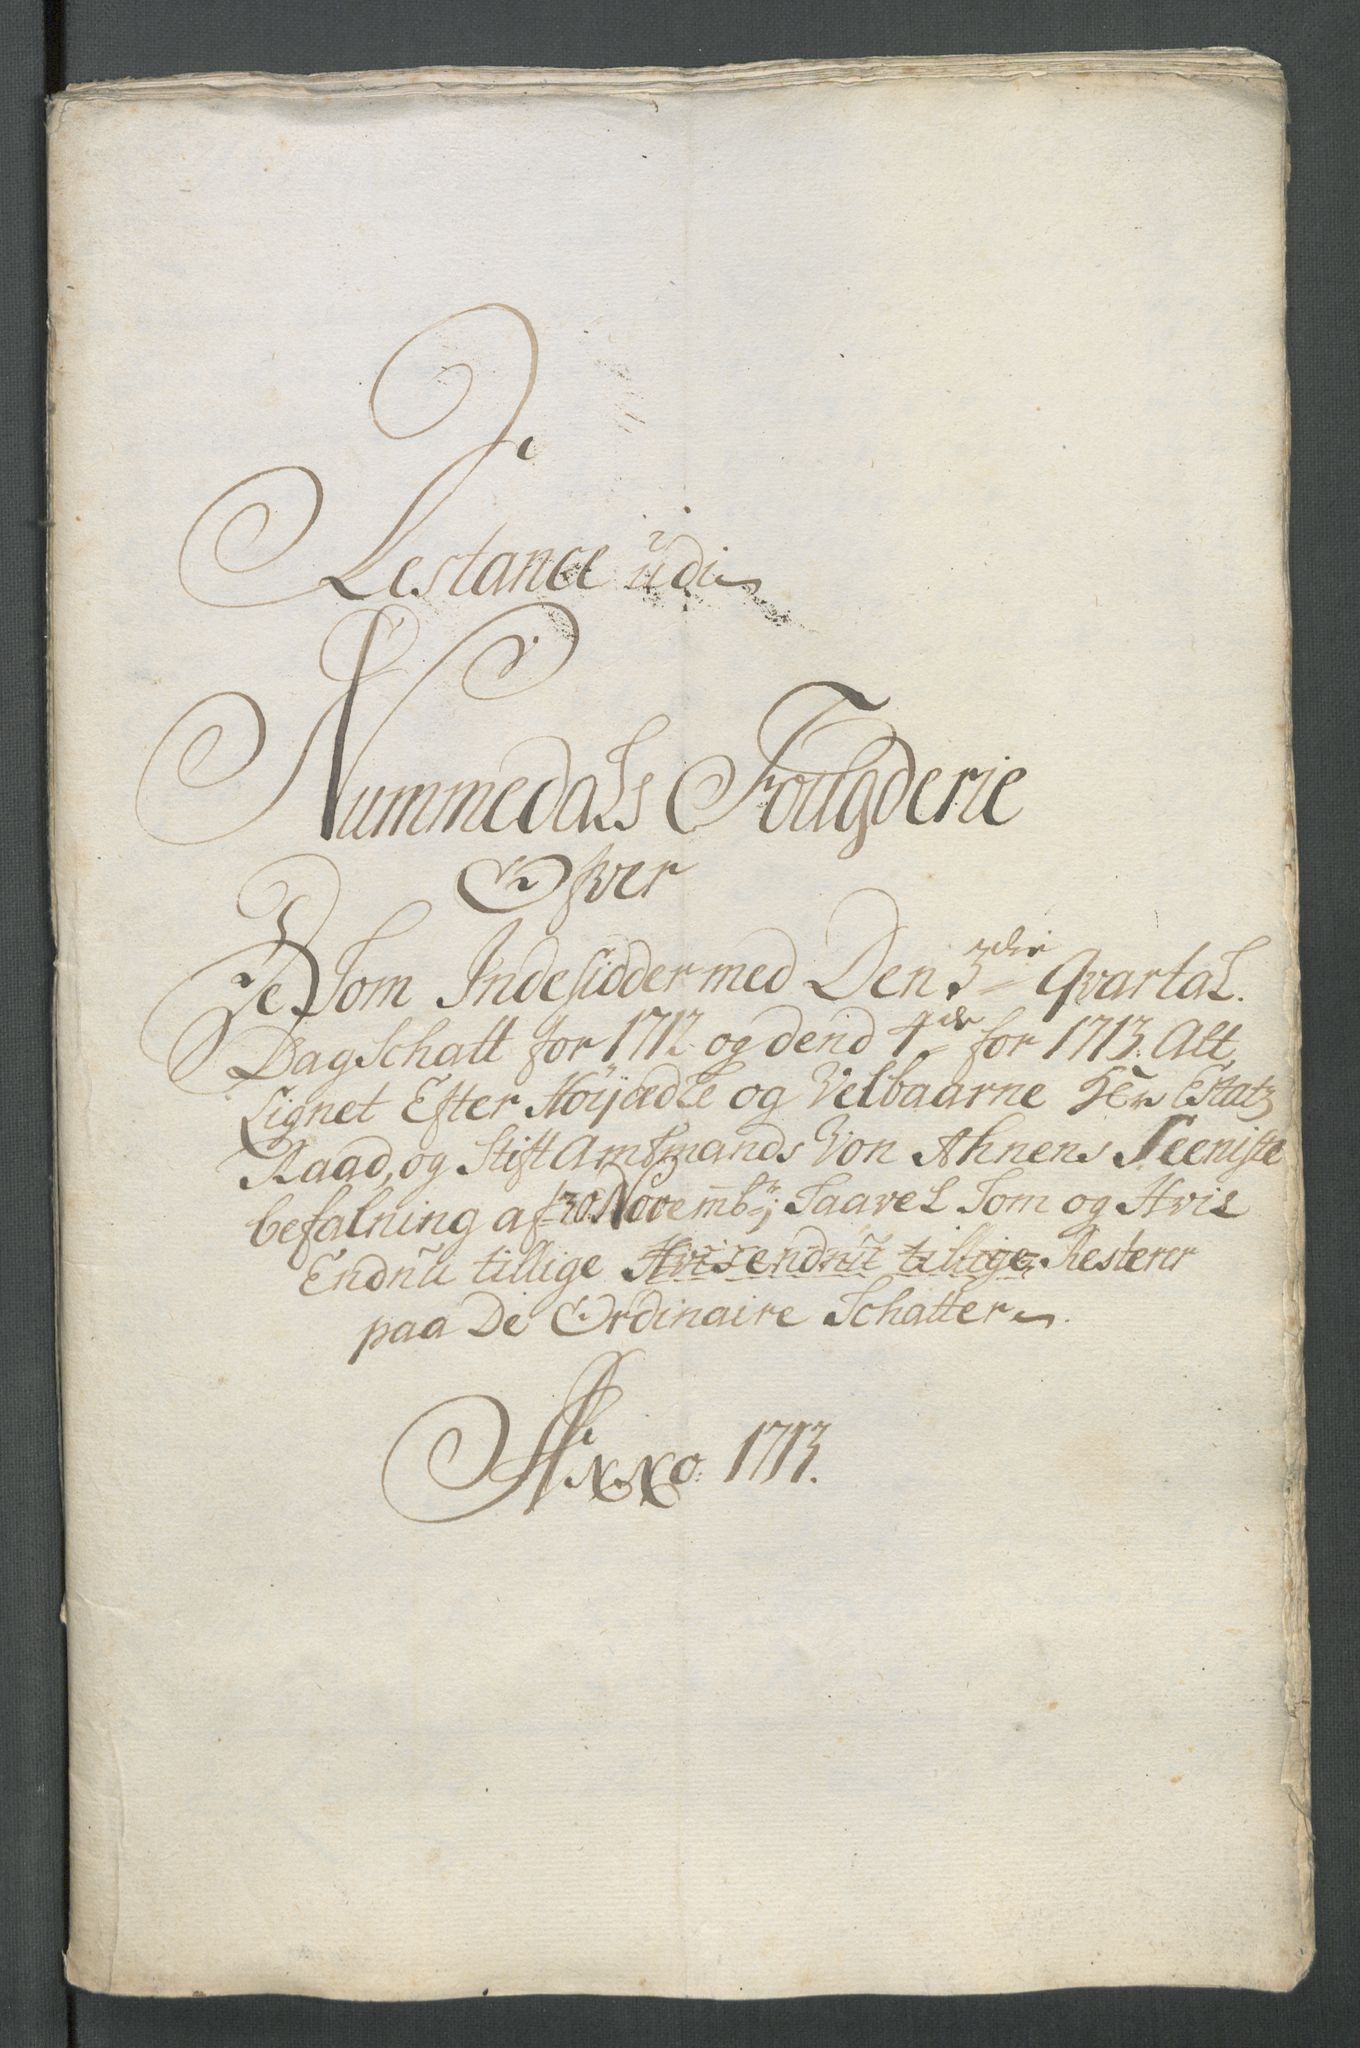 Restance udi
Nummedals Fougderie
Ofver
De Som Indesidder med Den 3die Qvartal.
Dagschatt for 1712 og dend 4de for 1713. Alt
Lignet Efter Höÿædle og Velbaarne Hr Etatz
Raad, og StiftAmtmands Von Ahnens Seeniste
befalning af 30 Novembr; Saavel Som og Hvis
Endnu tillige Hvis endnu tillige Resterer
paa De Ordinaire Schatter
Anno: 1713.